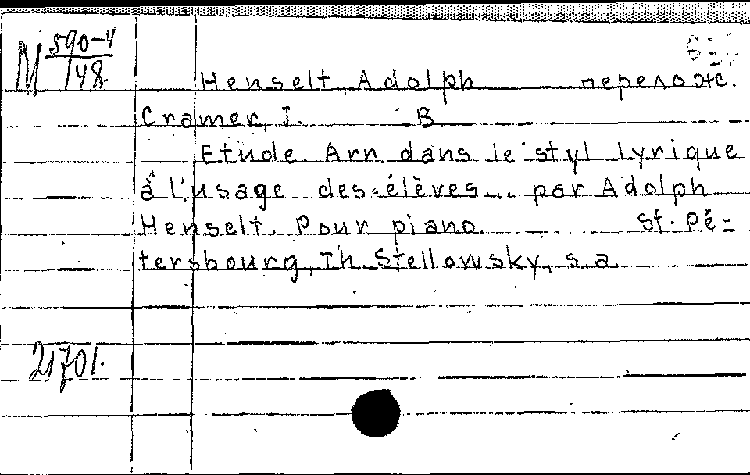 М 590-4
148
Henselt, Adolph перелож.
Cramer, J. B
Etude. Arr. dans le styl lyrique
à l'usage des élèves... par Adolph
Henselt. Pour piano. St. Pé-
tersbourg, Th. Stellowsky, s.a
21701.